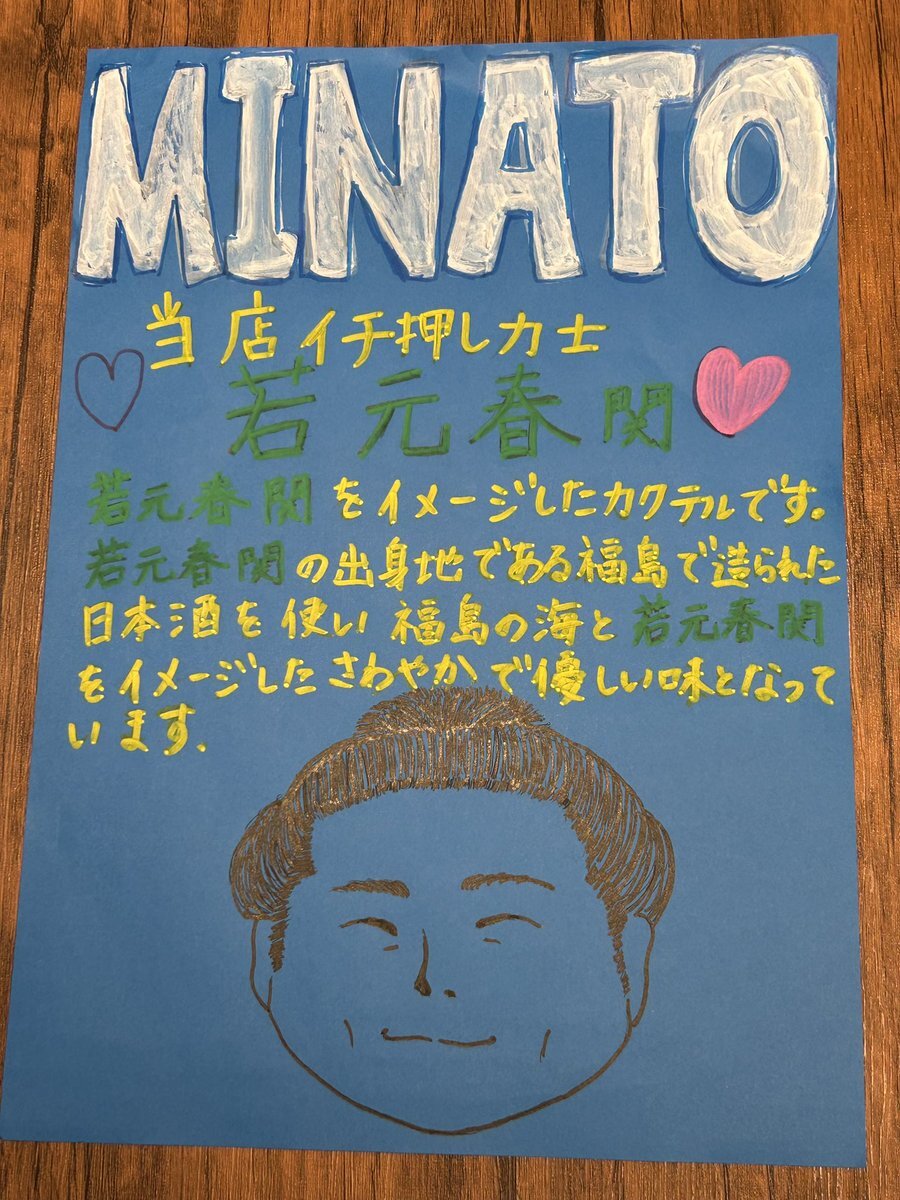 MINATO
当店イチ押し力士
若元春関
若元春関をイメージしたカクテルです。
若元春関の出身地である福島で造られた
日本酒を使い福島の海と若元春関
をイメージしたさわやかで優しい味となって
います.